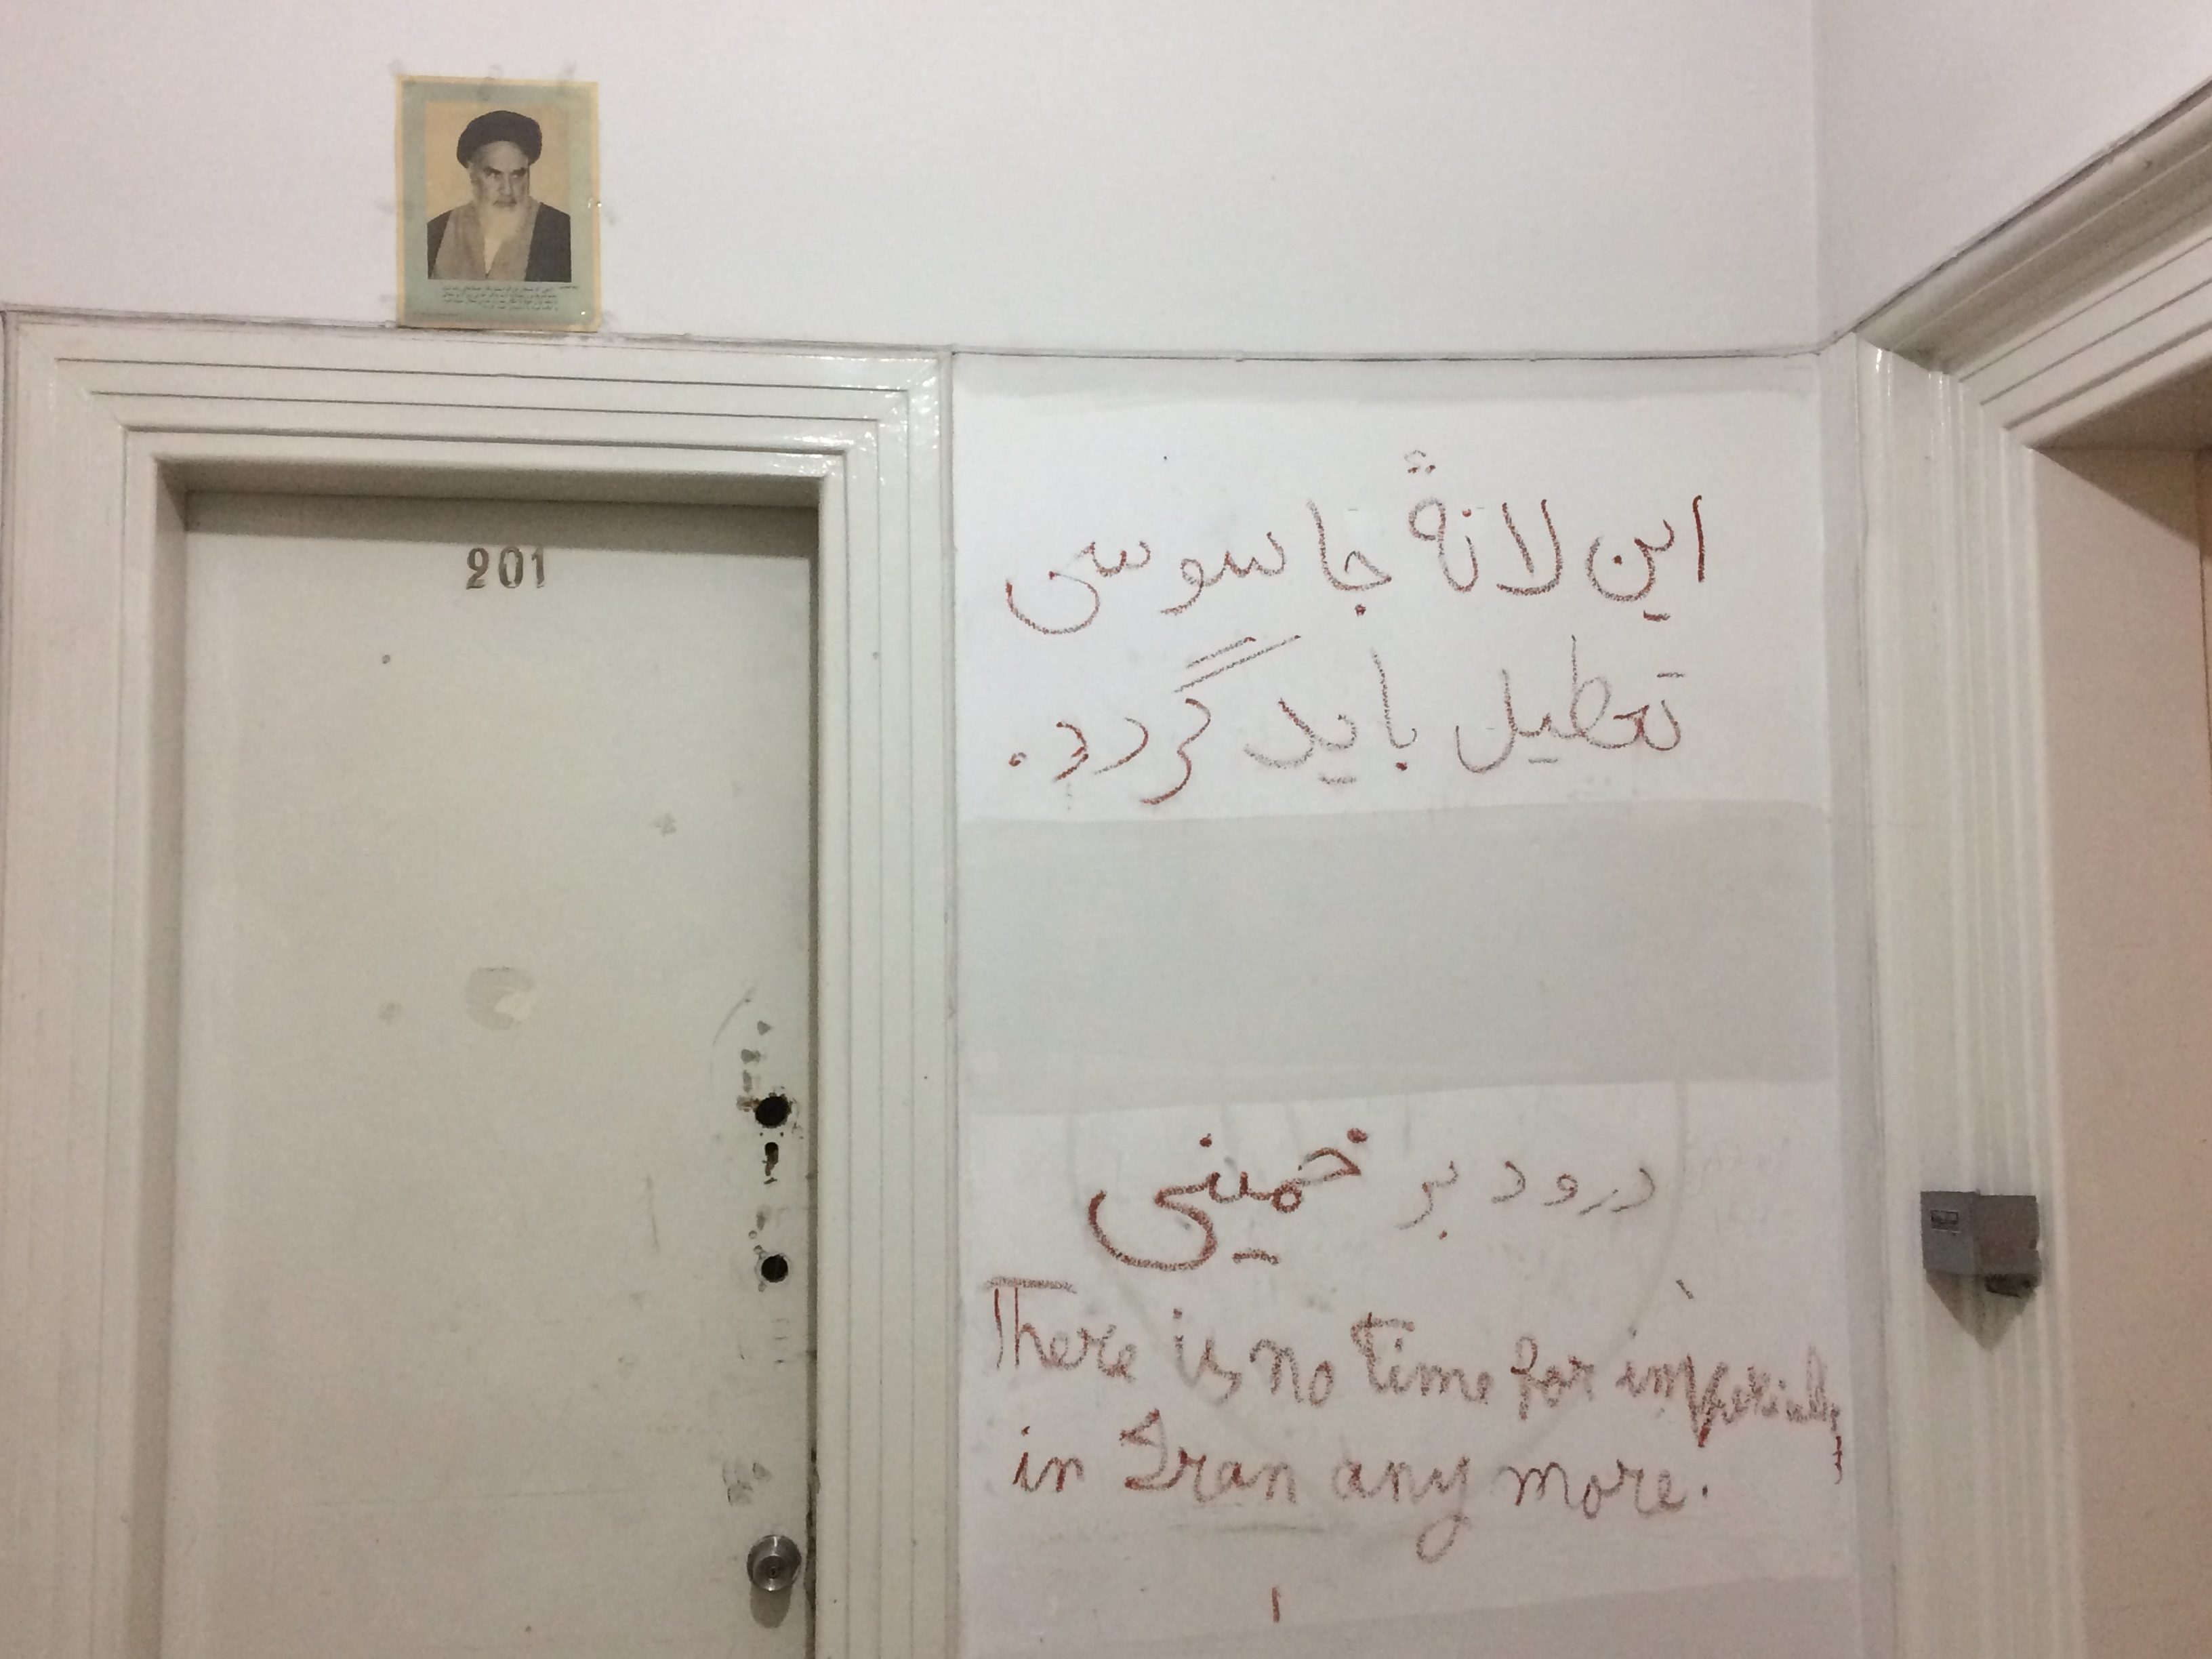 201
این لانهٔ جاسوسی
تعطیل باید گردد.
درود بر خمینی
There is no time for
in Iran any more.